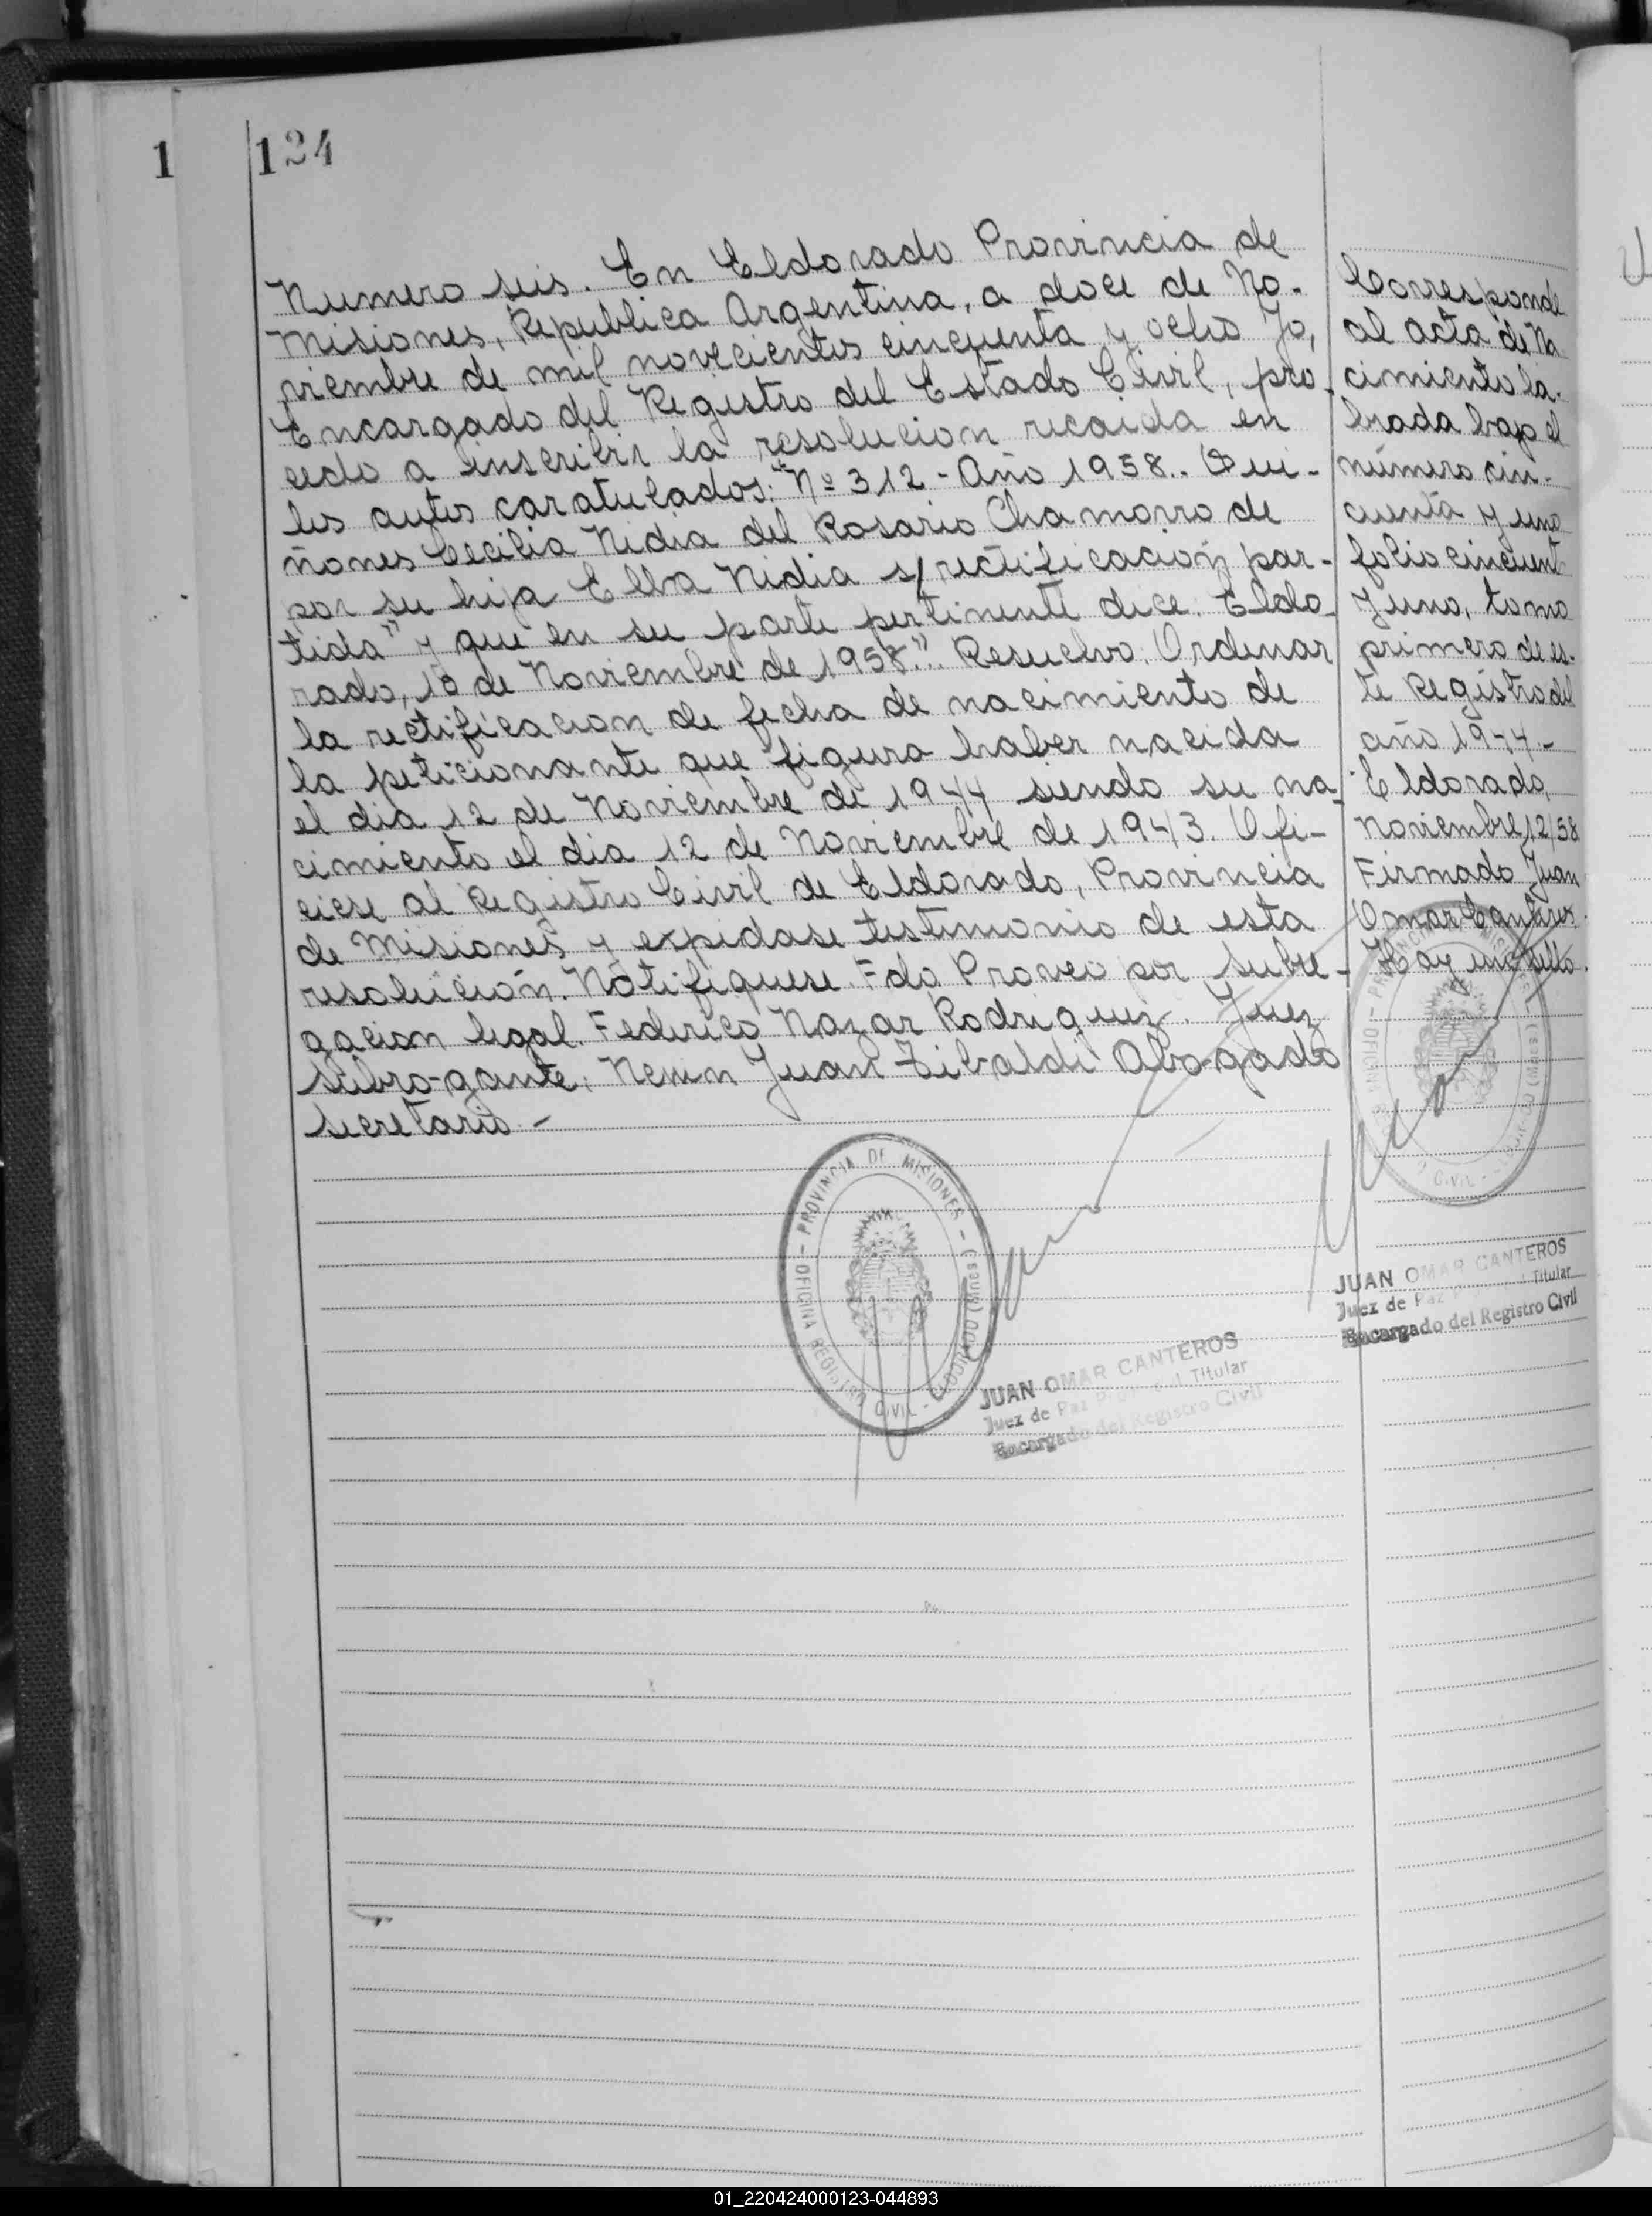 1
124
Numero seis. En Eldorado Provincia de
Misiones, Republica Argentina, a doce de No-
viembre de mil novecientos cincuenta y ocho Yo,
Encargado del Registro del Estado Civil, pro-
cedo a inscribir la resolucion recaida en
los autos caratulados: "Nº 312 - Año 1958.. Qui-
ñones Cecilia Nidia del Rosario Chamorro de
por su hija Elba Nidia s/rectificación par-
tida" y que en su parte pertinente dice: Eldo-
rado, 10 de Noviembre de 1958.". Resuelvo: Ordenar
la rectificacion de fecha de nacimiento de
la peticionante que figura haber nacida
el dia 12 de Noviembre de 1944 siendo su na-
cimiento el dia 12 de Noviembre de 1943. Ofi-
ciese al Registro Civil de Eldorado, Provincia
de Misiones y expidase testimonio de esta
resolución. Notifiquese. Fdo Proveo por subro-
gacion legal. Federico Nazar Rodriguez. Juez
Subro-gante; Juan Abogado
secretario -
Corresponde
al acta de Na
cimiento la-
brada bajo el
número cin-
cuenta y uno
folio cincuent
y uno, tomo
primero de es-
te Registro del
año 1944.-
Eldorado,
Noviembre 12/58
Firmado Juan
Omar Canteros
Hay un sello.
- PROVINCIA DE MISIONES -
OFICINA REGISTRO CIVIL - ELDORADO (Mnes)
JUAN OMAR CANTEROS
Juez de Paz Titular
Encargado del Registro Civil
JUAN OMAR CANTEROS
Juez de Paz Titular
Encargado del Registro Civil
01_220424000123-044893